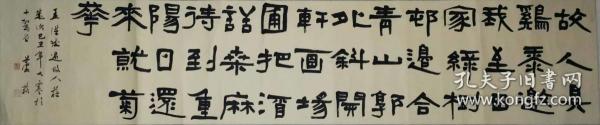 故人具
鷄黍邀
我至田
家綠樹
邨邊合
青山郭
外斜開
軒面場
圃把酒
話桑麻
待到重
陽日還
來就菊
華
孟浩然過故人莊
歲次己丑年大寒於
孔夫子旧书网